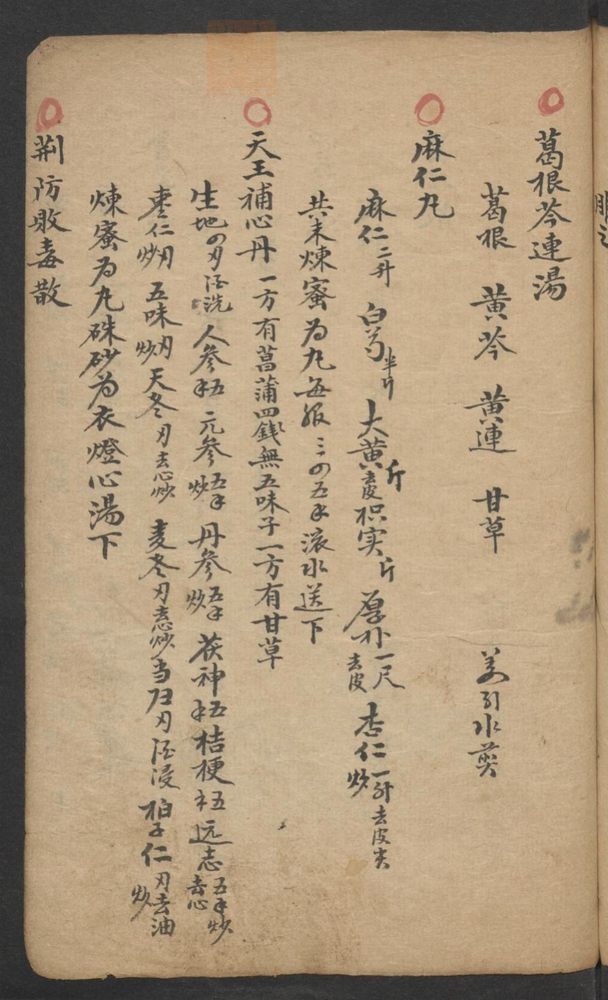 葛根芩連湯
葛根 黄芩 黄連 甘草 姜引水煎
麻仁丸
麻仁二升 白芍半斤 大黄斤去皮 枳实斤 厚朴一尺去皮 杏仁一升去皮尖炒
共末煉蜜為丸每服三四五 滚水送下
天王補心丹 一方有菖蒲四錢無五味子一方有甘草
生地四 酒洗 人参 五 元参五 炒 丹参五 炒 茯神 五 桔梗 五 远志五 炒去心
枣仁 炒 五味 炒 天冬 去心炒 麦冬 去心炒 当归 酒浸 柏子仁 去油炒
煉蜜為丸硃砂為衣燈心湯下
荆防败毒散